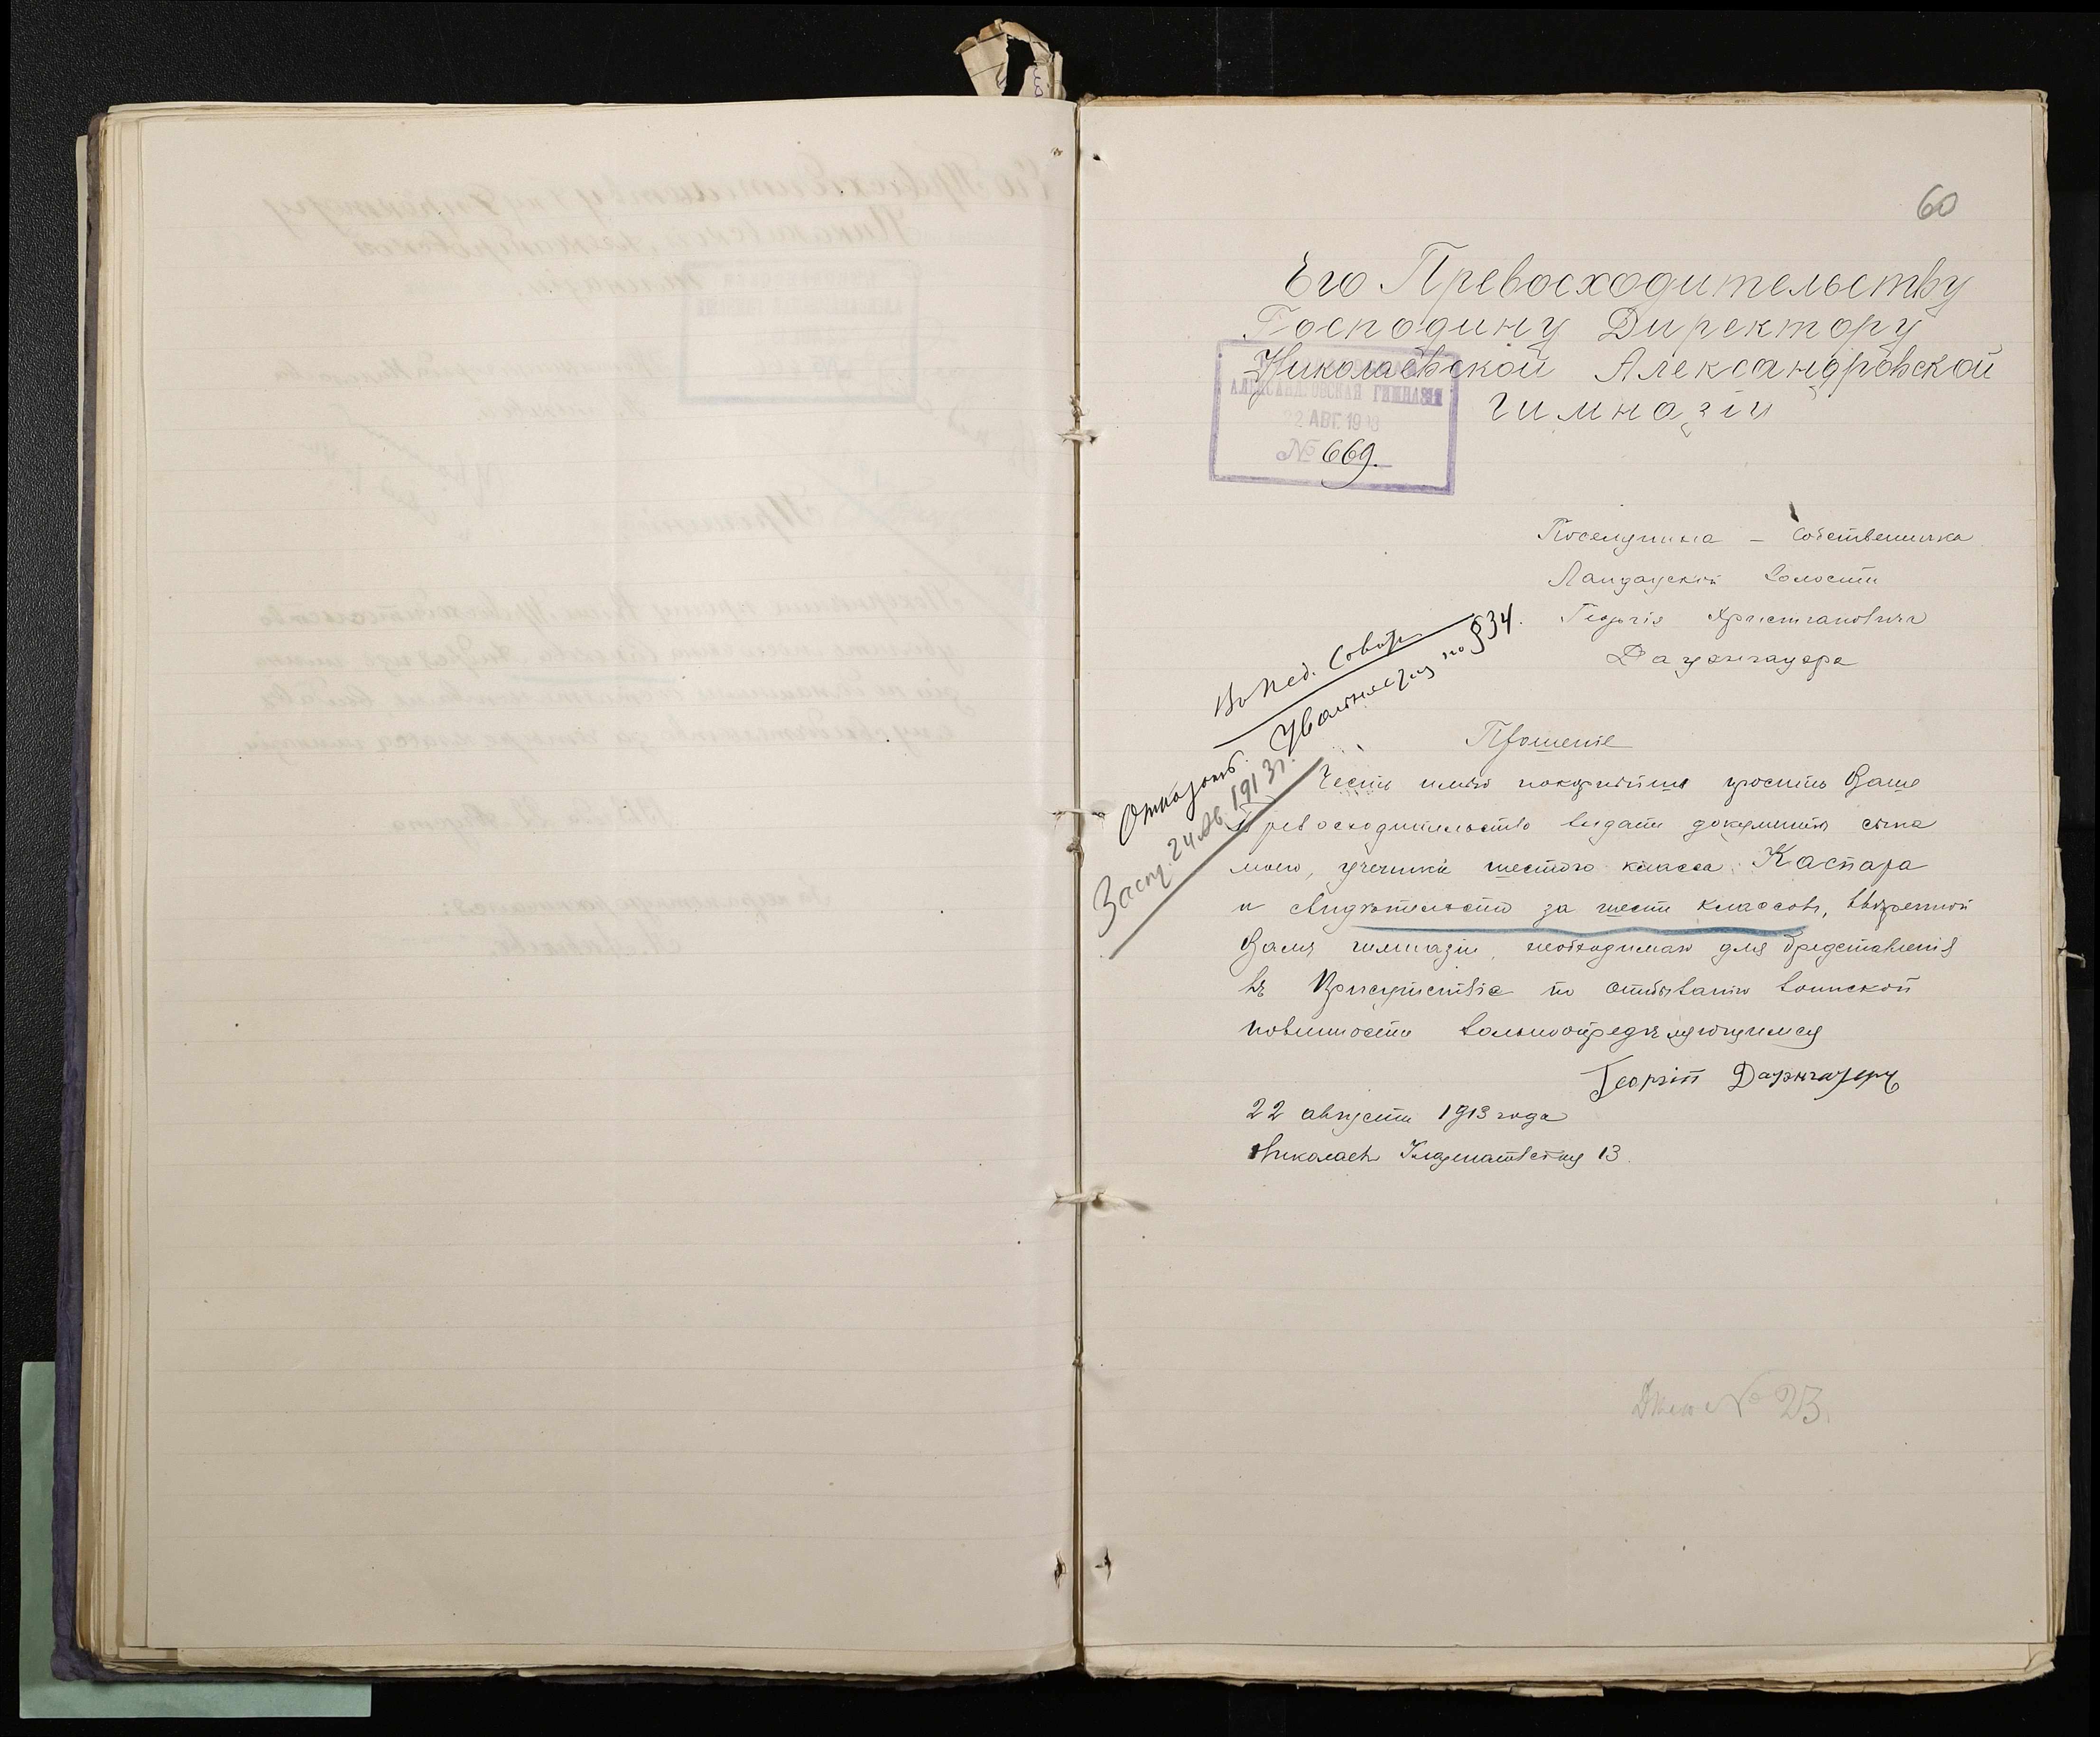 60
Его Превосходительству
Господину Директору
Николаевской Александровской
гимназіи
АЛЕКСАНДРОВСКАЯ ГИМНАЗІЯ
22 АВГ. 1913
№ 669.
Поселянина - Собственника
Ландауской волости
Георгія Христіановича
Дауэнгауэра
Въ Пед. Совѣтъ
Отказать. Увольняется по § 34.
Засѣд. 24 Ав. 1913 г.
Прошеніе
Честь имѣю покорнѣйше просить Ваше
Превосходительство выдать документы сына
моего, ученика шестого класса Каспара
и свидѣтельство за шесть классовъ, ввѣренной
Вамъ гимназіи, необходимаго для представленія
въ Присутствіе по отбыванію воинской
повинности вольноопредѣляющимся
Георгій Дауэнгауеръ
22 августа 1913 года
Николаевъ 13.
Дѣло № 23.